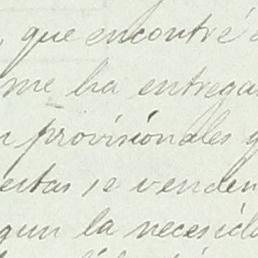 , que encontré
me ha entrega
provisionales
se venden
la necesida